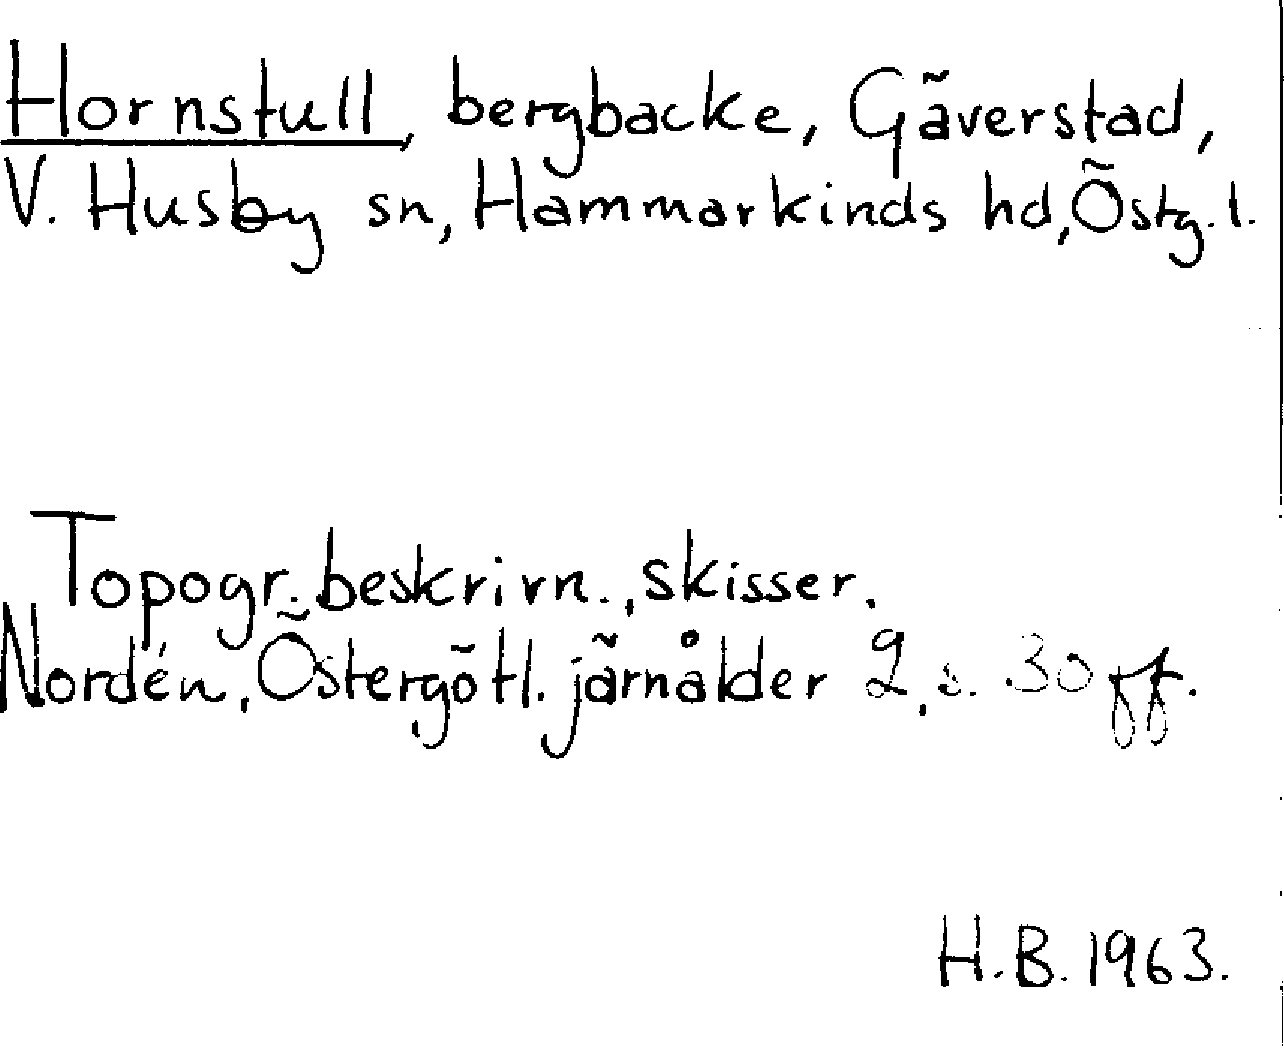 Hornstull, bergbacke, Gäverstad,
V. Husby sn, Hammarkinds hd, Östg. l.
Topogr. beskrivn., skisser.
Nordén, Östergötl. järnålder 2, s. 30 ff.
H.B. 1963.